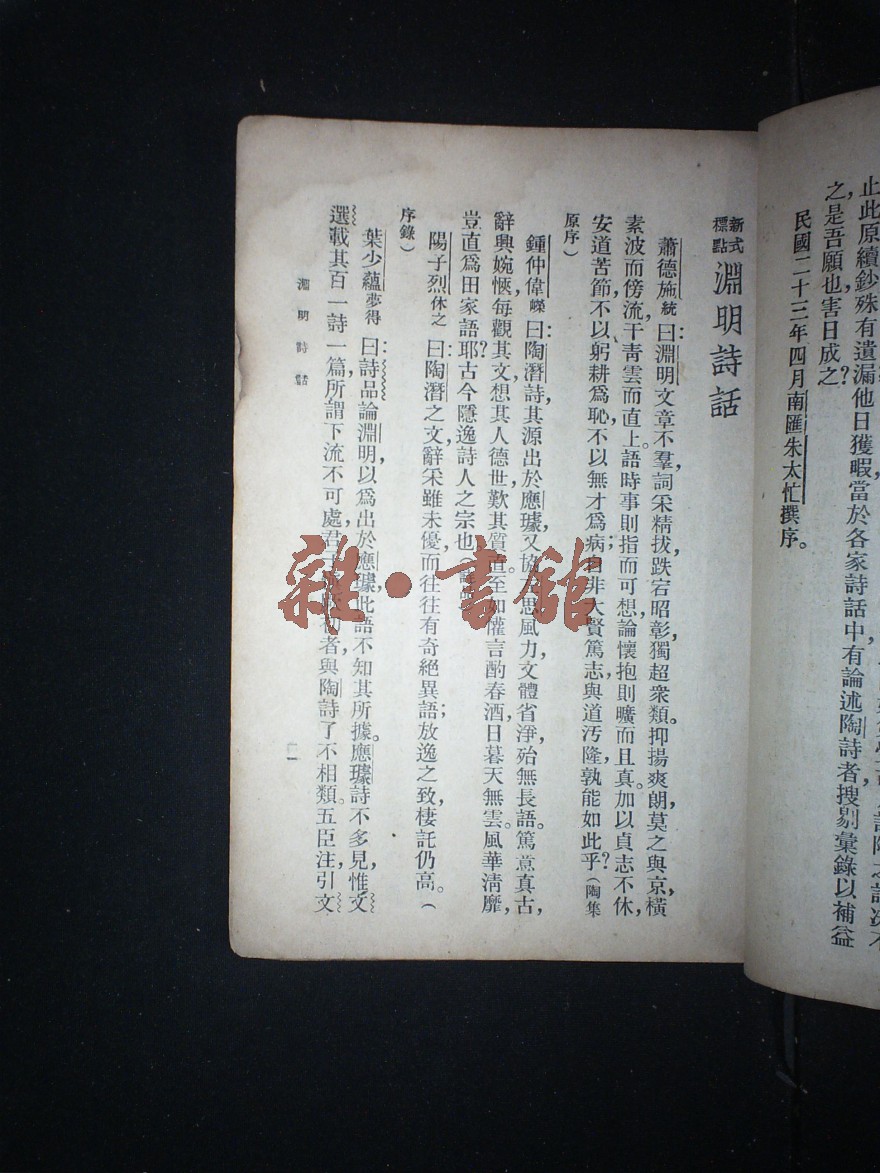 止此原續鈔殊有遺漏他日獲暇當於各家詩話中有論述陶詩者搜剔彙錄以補益
之是吾願也害日成之？
民國二十三年四月南匯朱太忙撰序。
新式標點 淵明詩話
蕭德施統曰：淵明文章不羣，詞采精拔，跌宕昭彰，獨超衆類。抑揚爽朗，莫之與京。橫
素波而傍流，干靑雲而直上。語時事則指而可想，論懷抱則曠而且真。加以貞志不休，
安道苦節，不以躬耕爲恥，不以無才爲病；自非大賢篤志，與道汚隆，孰能如此乎？（陶集
原序）
鍾仲偉嶸曰：陶潛詩其源出於應璩，又協思風力，文體省淨，殆無長語。篤意真古，
辭興婉愜。每觀其文，想其人德。世歎其質直。至如懽言酌春酒，日暮天無雲。風華清靡，
豈直爲田家語耶？古今隱逸詩人之宗也。
陽子烈休之曰：陶潛之文，辭采雖未優，而往往有奇絕異語；放逸之致，棲託仍高。（
序錄）
葉少蘊夢得曰：詩品論淵明，以爲出於應璩，此語不知其所據。應璩詩不多見，惟文
選載其百一詩一篇，所謂下流不可處，君者，與陶詩了不相類。五臣注引文
淵明詩話
一
雜·書館